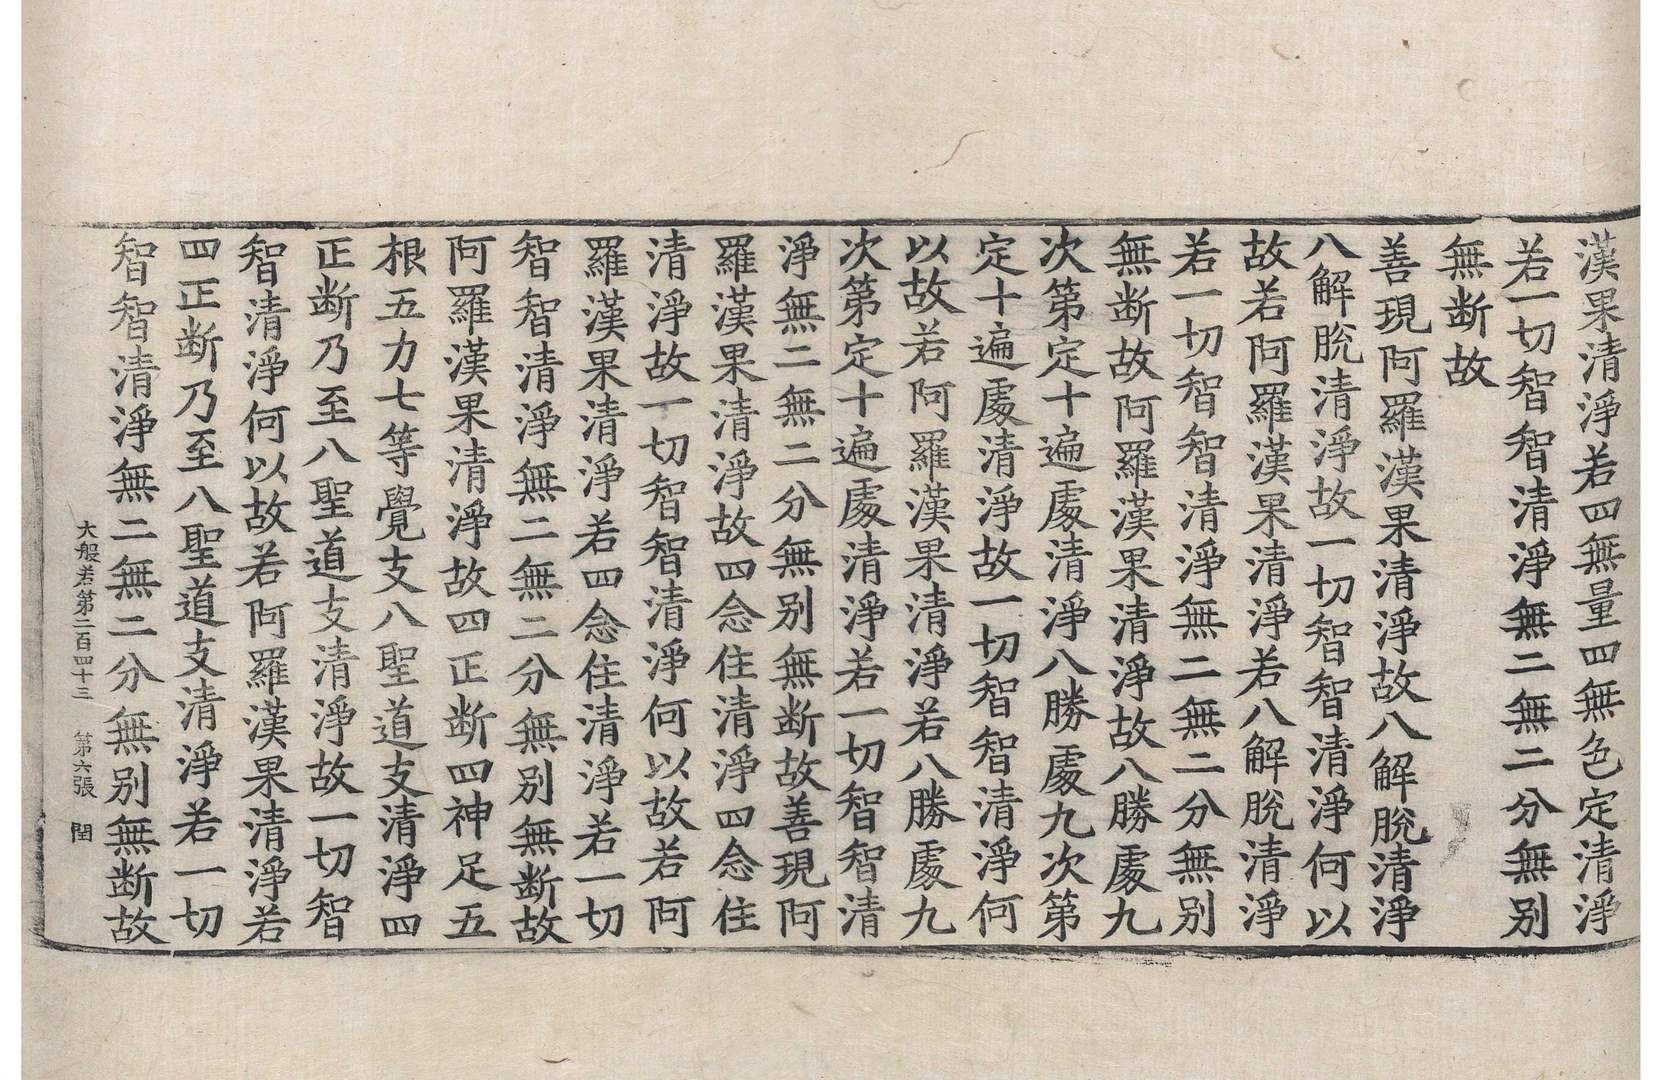 漢果清淨若四無量四無色定清淨
若一切智智清淨無二無二分無别
無断故
善現阿羅漢果清淨故八解脫清淨
八解脫清淨故一切智智清淨何以
故若阿羅漢果清淨若八解脫清淨
若一切智智清淨無二無二分無别
無断故阿羅漢果清淨故八勝處九
次第定十遍處清淨八勝處九次第
定十遍處清淨故一切智智清淨何
以故若阿羅漢果清淨若八勝處九
次第定十遍處清淨若一切智智清
淨無二無二分無别無断故善現阿
羅漢果清淨故四念住清淨四念住
清淨故一切智智清淨何以故若阿
羅漢果清淨若四念住清淨若一切
智智清淨無二無二分無别無断故
阿羅漢果清淨故四正断四神足五
根五力七等覺支八聖道支清淨四
正断乃至八聖道支清淨故一切智
智清淨何以故若阿羅漢果清淨若
四正断乃至八聖道支清淨若一切
智智清淨無二無二分無别無断故
大般若第二百四十三 第六張 閏